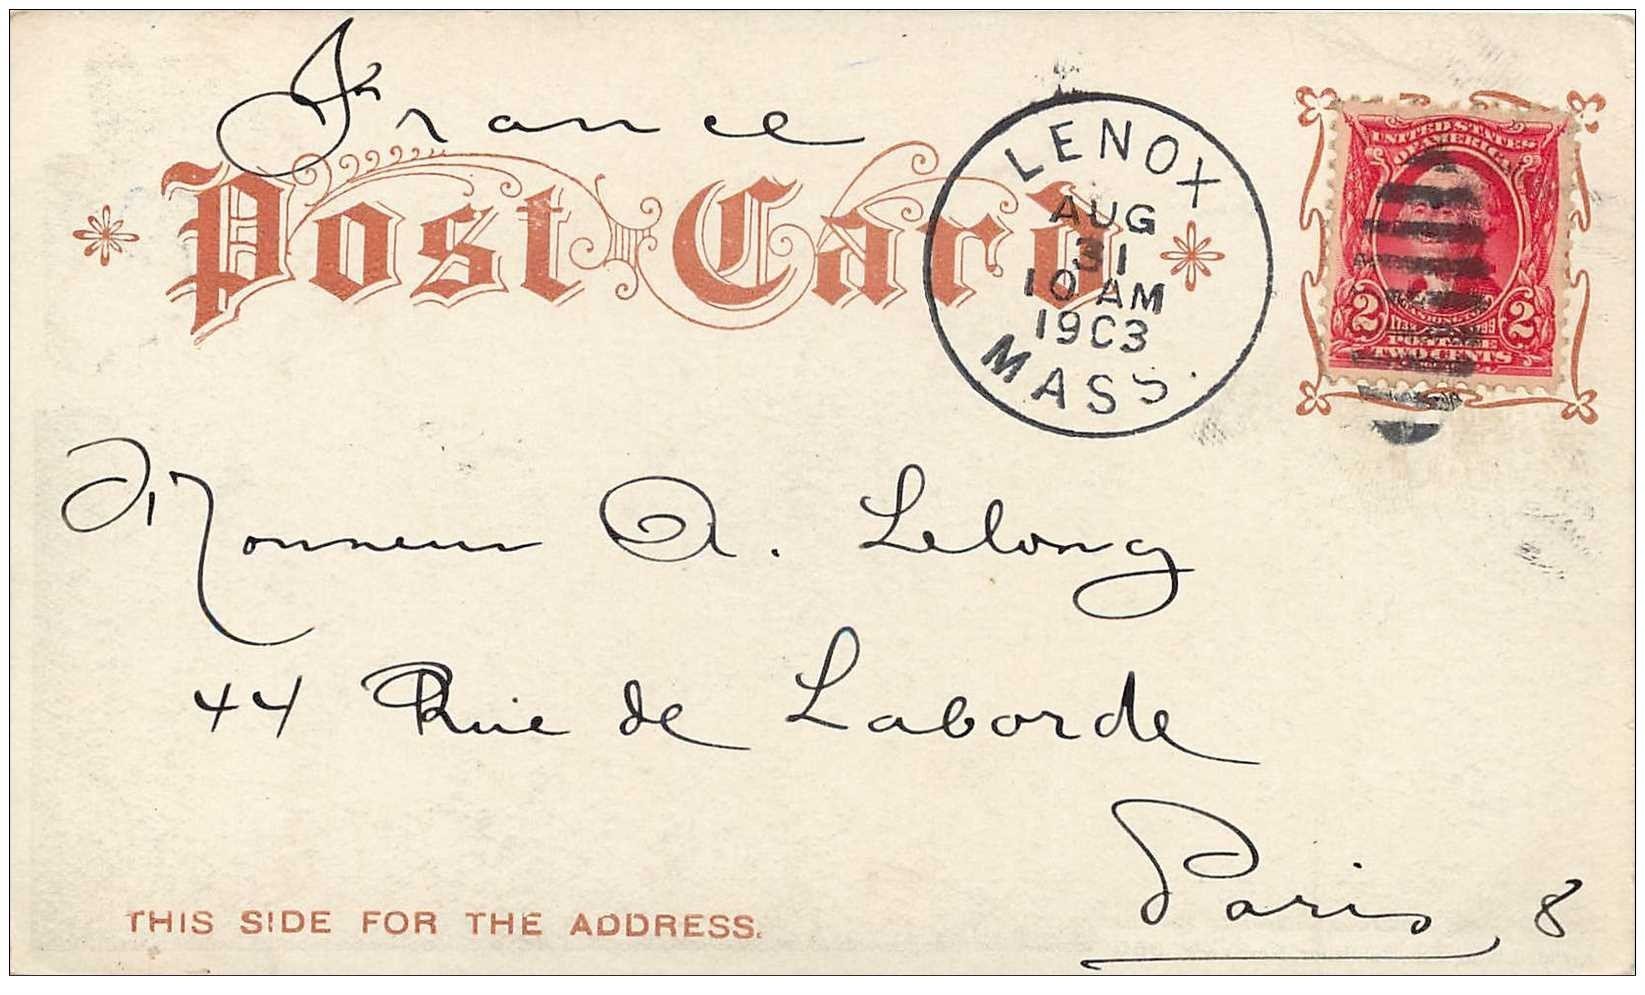 France
Post Card
LENOX
AUG
31
10 AM
1903
MASS.
UNITED STATES
OF AMERICA
2 2
POSTAGE
TWO CENTS
Monsieur A. Lelong
44 Rue de Laborde
Paris 8
THIS SIDE FOR THE ADDRESS.